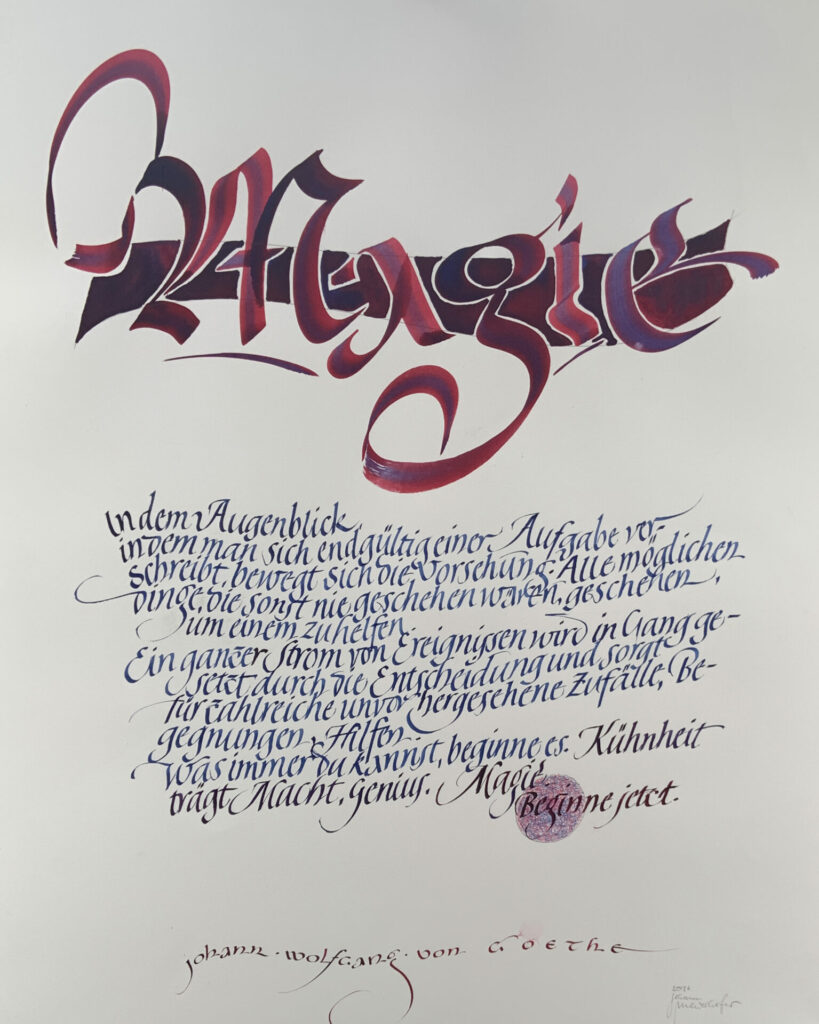 Magie
In dem Augenblick,
in dem man sich endgültig einer Aufgabe ver-
schreibt, bewegt sich die Vorsehung. Alle möglichen
dinge, die sonst nie geschehen wären, geschehen,
um einem zu helfen.
Ein ganzer Strom von Ereignissen wird in Gang ge-
setzt durch die Entscheidung und sorgt
für zahlreiche unvorhergesehene Zufälle, Be-
gegnungen, Hilfen
Was immer du kannst, beginne es. Kühnheit
trägt Macht, Genius. Magie.
Beginne jetzt.
johann · wolfgang · von Goethe
Johann